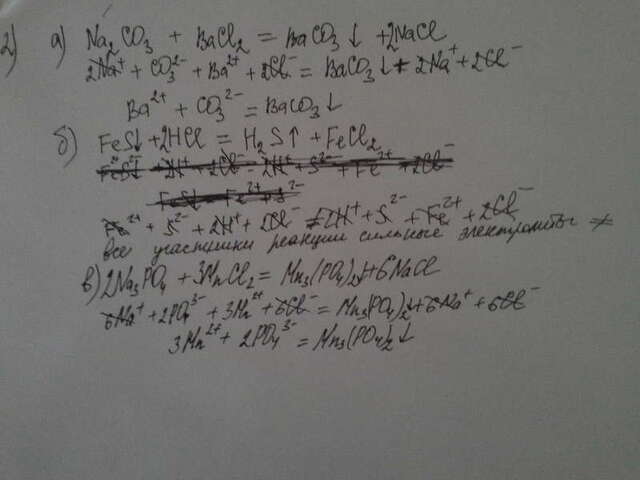 2) а) Na₂CO₃ + BaCl₂ = BaCO₃↓ + 2NaCl
2Na⁺ + CO₃²⁻ + Ba²⁺ + 2Cl⁻ = BaCO₃↓ + 2Na⁺ + 2Cl⁻
Ba²⁺ + CO₃²⁻ = BaCO₃↓
б) FeS↓ + 2HCl = H₂S↑ + FeCl₂
FeS↓ + 2H⁺ + 2Cl⁻ = 2H⁺ + S²⁻ + Fe²⁺ + 2Cl⁻
FeS↓ = Fe²⁺ + S²⁻
Fe²⁺ + S²⁻ + 2H⁺ + 2Cl⁻ ≠ 2H⁺ + S²⁻ + Fe²⁺ + 2Cl⁻
все участники реакции сильные электролиты ≠
в) 2Na₃PO₄ + 3MnCl₂ = Mn₃(PO₄)₂↓ + 6NaCl
6Na⁺ + 2PO₄³⁻ + 3Mn²⁺ + 6Cl⁻ = Mn₃(PO₄)₂↓ + 6Na⁺ + 6Cl⁻
3Mn²⁺ + 2PO₄³⁻ = Mn₃(PO₄)₂↓